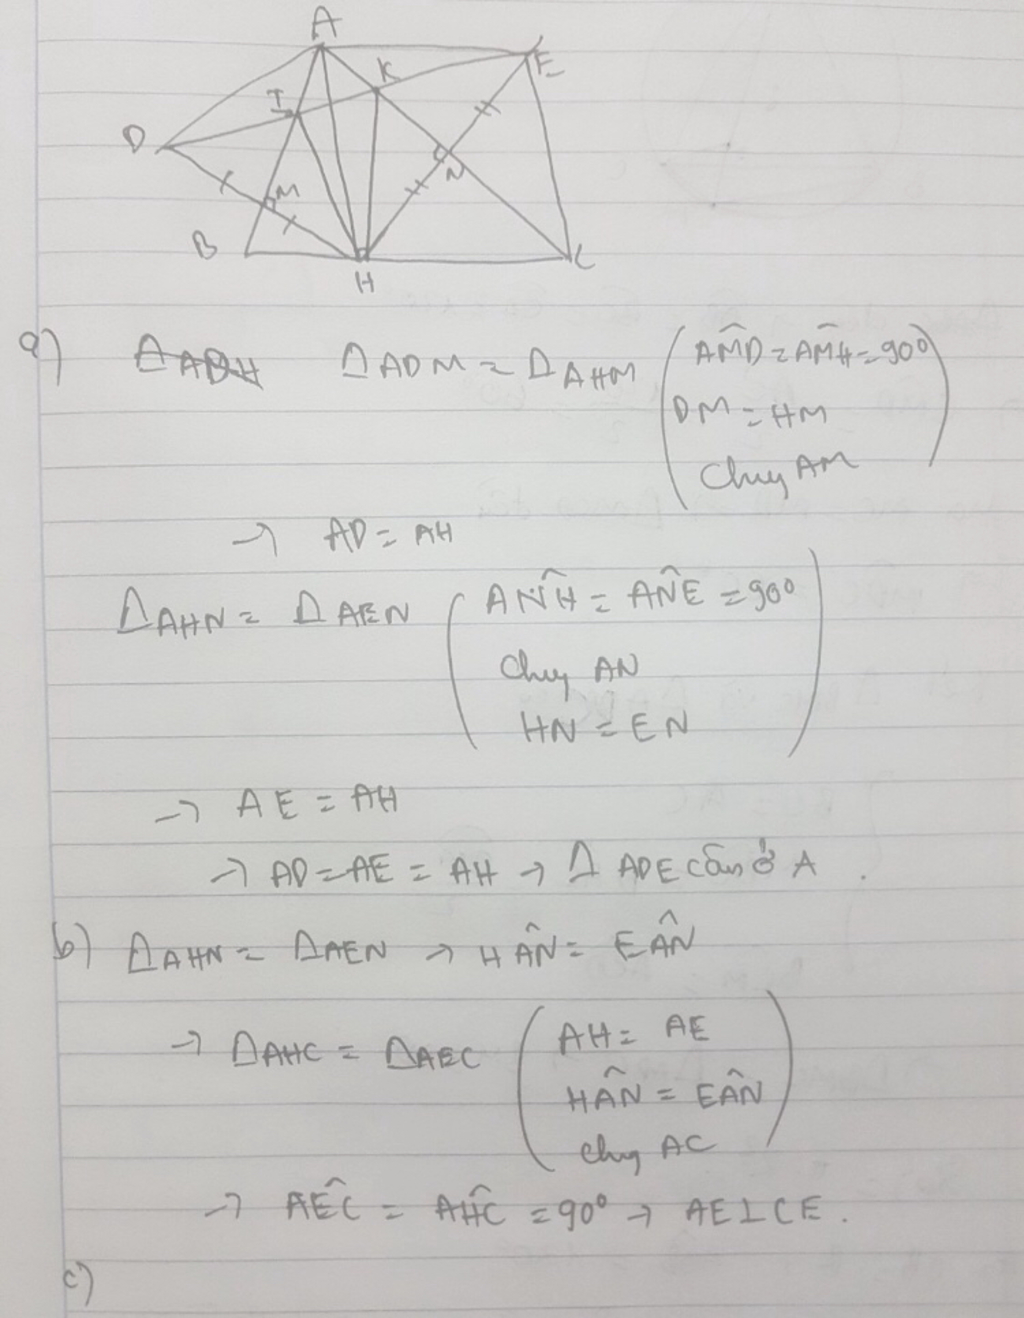 A
K
E
I
D
M
N
B
H
C
a) ΔADM = ΔAHM ( AM̂D = AM̂H = 90°
DM = HM
Chug AM )
→ AD = AH
ΔAHN = ΔAEN ( AN̂H = AN̂E = 90°
Chug AN
HN = EN )
→ AE = AH
→ AD = AE = AH → Δ ADE cân ở A .
b) ΔAHN = ΔAEN → HÂN = EÂN
→ ΔAHC = ΔAEC ( AH = AE
HÂN = EÂN
chug AC )
→ AÊC = AĤC = 90° → AE⊥CE .
c)